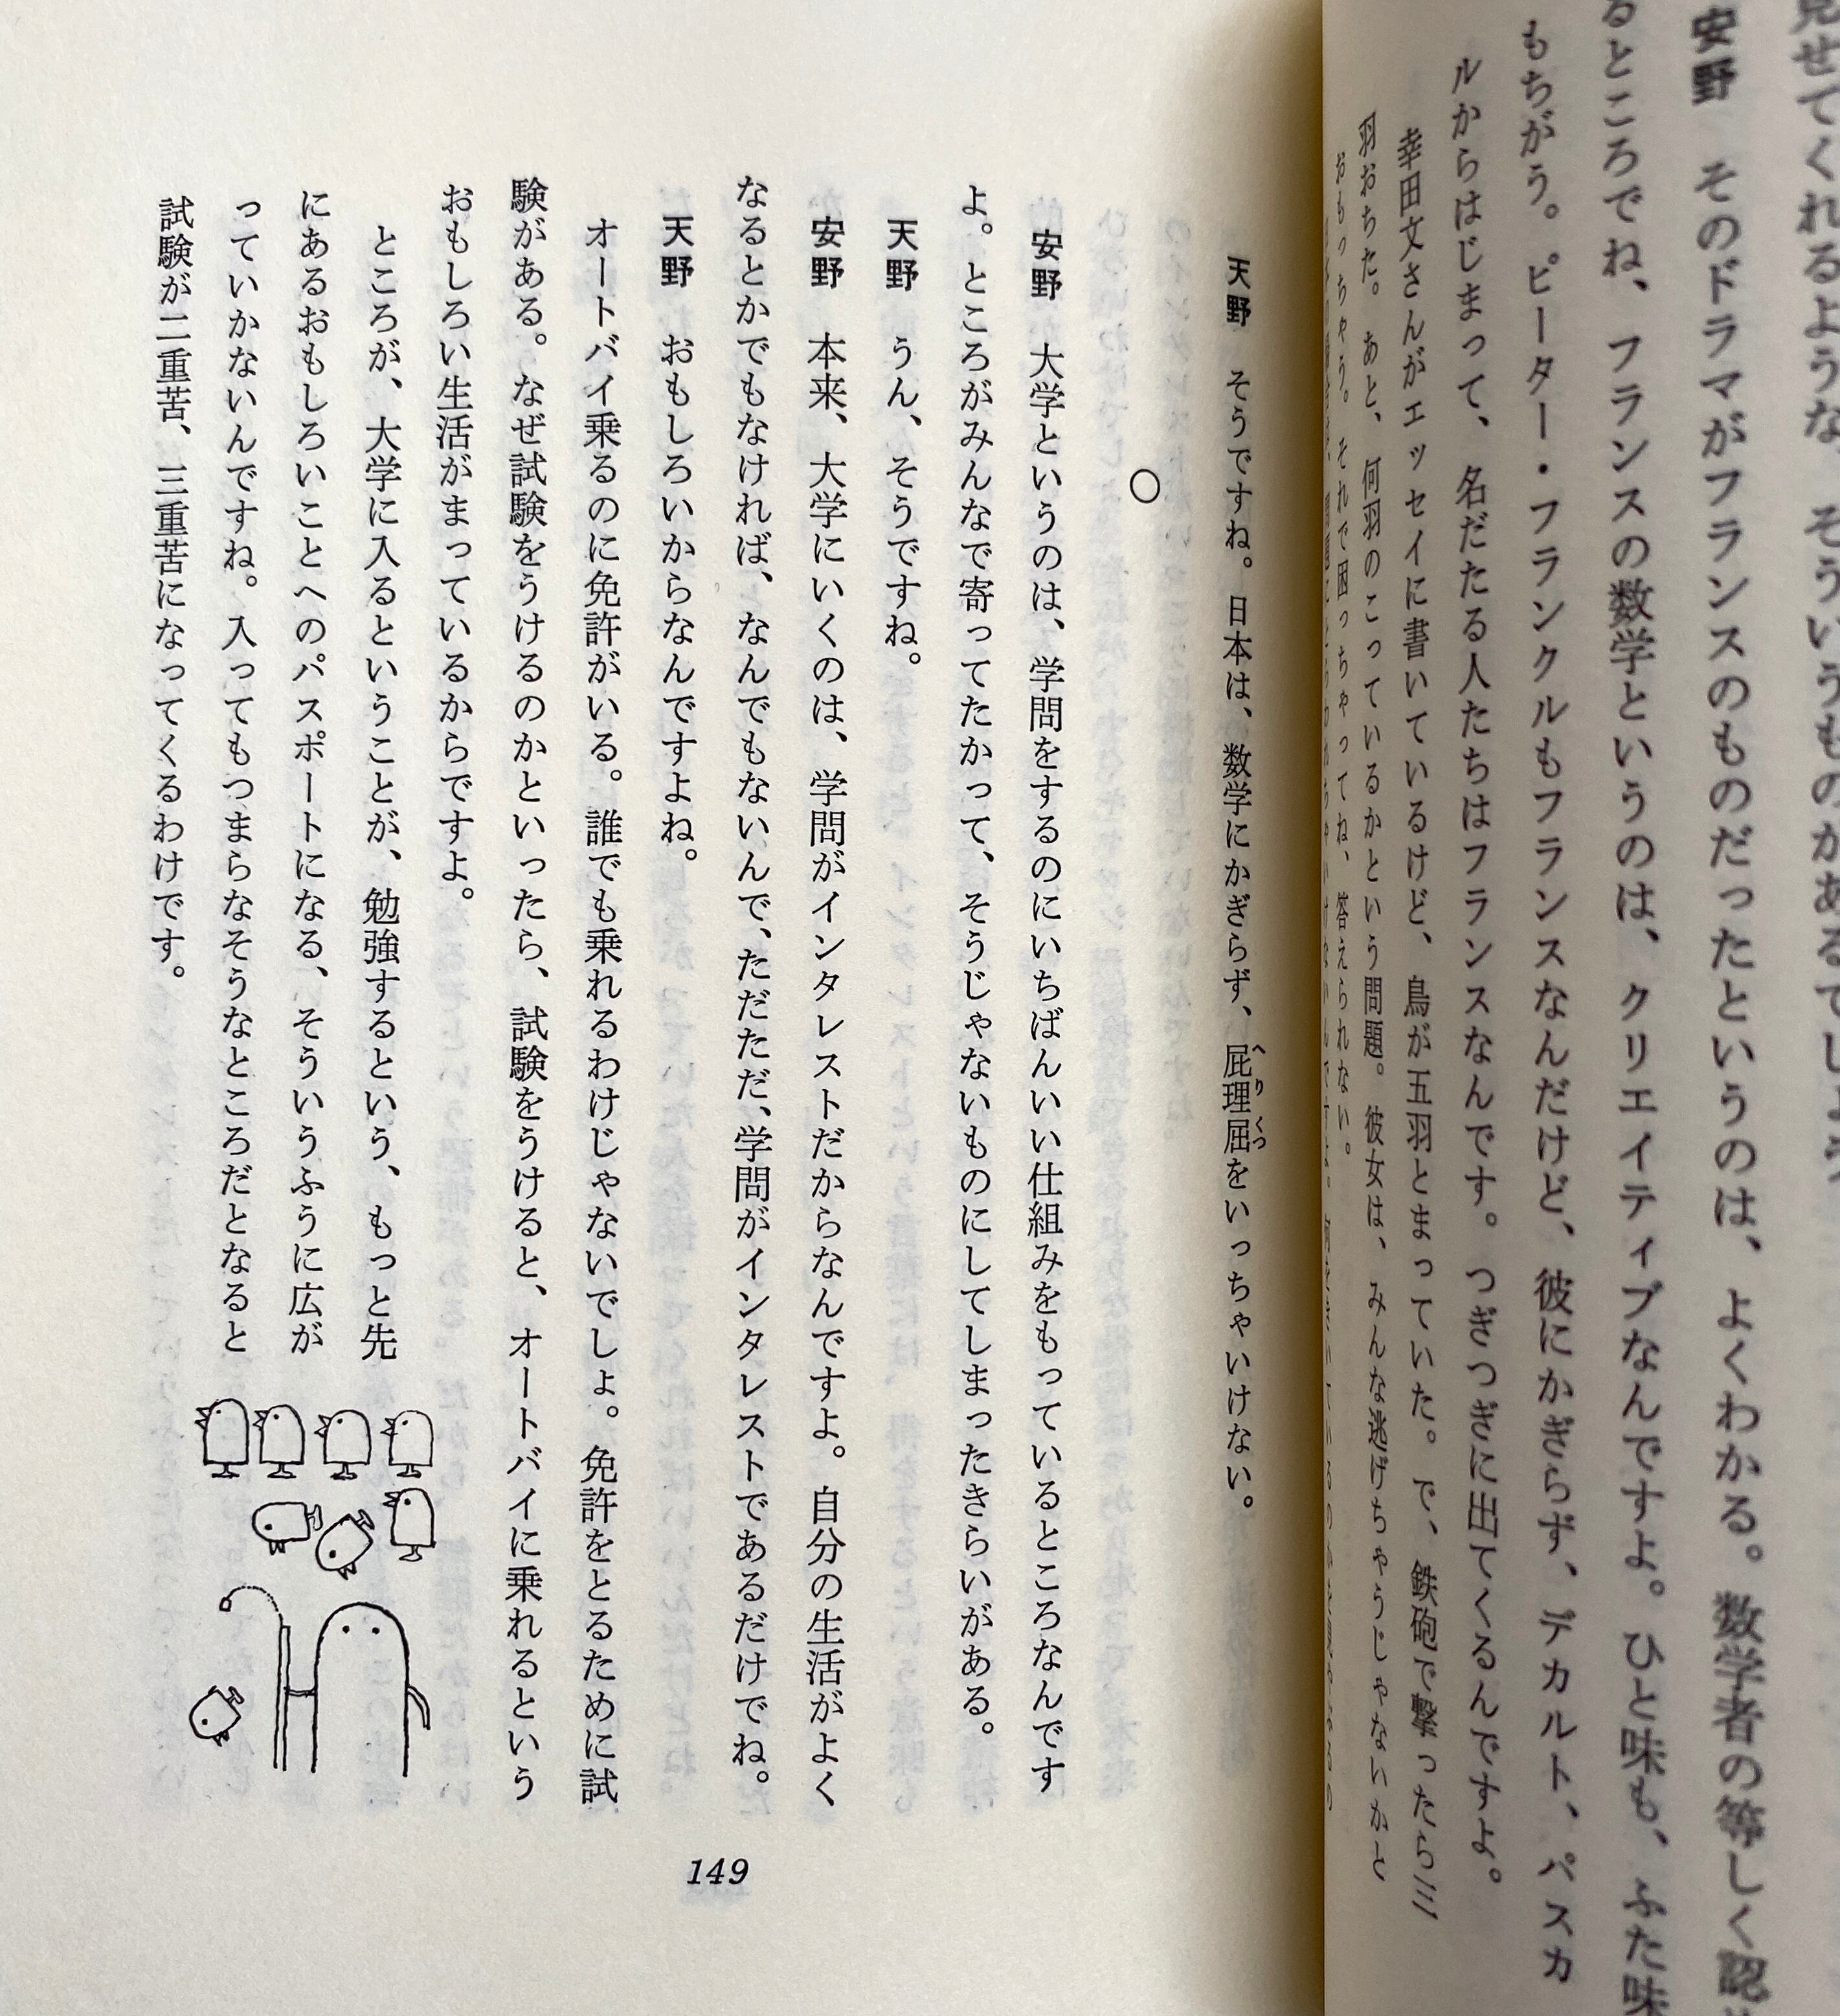 見せてくれるような、そういうものがあるでしょう
安野　そのドラマがフランスのものだったというのは、よくわかる。数学者の等しく認
るところでね、フランスの数学というのは、クリエイティブなんですよ。ひと味も、ふた味
もちがう。ピーター・フランクルもフランスなんだけど、彼にかぎらず、デカルト、パスカ
ルからはじまって、名だたる人たちはフランスなんです。つぎつぎに出てくるんですよ。
幸田文さんがエッセイに書いているけど、鳥が五羽とまっていた。で、鉄砲で撃ったら三
羽おちた。あと、何羽のこっているかという問題。彼女は、みんな逃げちゃうじゃないかと
おもっちゃう。それで困っちゃってね、答えられない。
天野　そうですね。日本は、数学にかぎらず、屁理屈をいっちゃいけない。
へりくつ
○
安野　大学というのは、学問をするのにいちばんいい仕組みをもっているところなんです
よ。ところがみんなで寄ってたかって、そうじゃないものにしてしまったきらいがある。
天野　うん、そうですね。
安野　本来、大学にいくのは、学問がインタレストだからなんですよ。自分の生活がよく
なるとかでもなければ、なんでもないんで、ただただ、学問がインタレストであるだけでね。
天野　おもしろいからなんですよね。
オートバイ乗るのに免許がいる。誰でも乗れるわけじゃないでしょ。免許をとるために試
験がある。なぜ試験をうけるのかといったら、試験をうけると、オートバイに乗れるという
おもしろい生活がまっているからですよ。
ところが、大学に入るということが、勉強するという、もっと先
にあるおもしろいことへのパスポートになる、そういうふうに広が
っていかないんですね。入ってもつまらなそうなところだとなると
試験が二重苦、三重苦になってくるわけです。
149